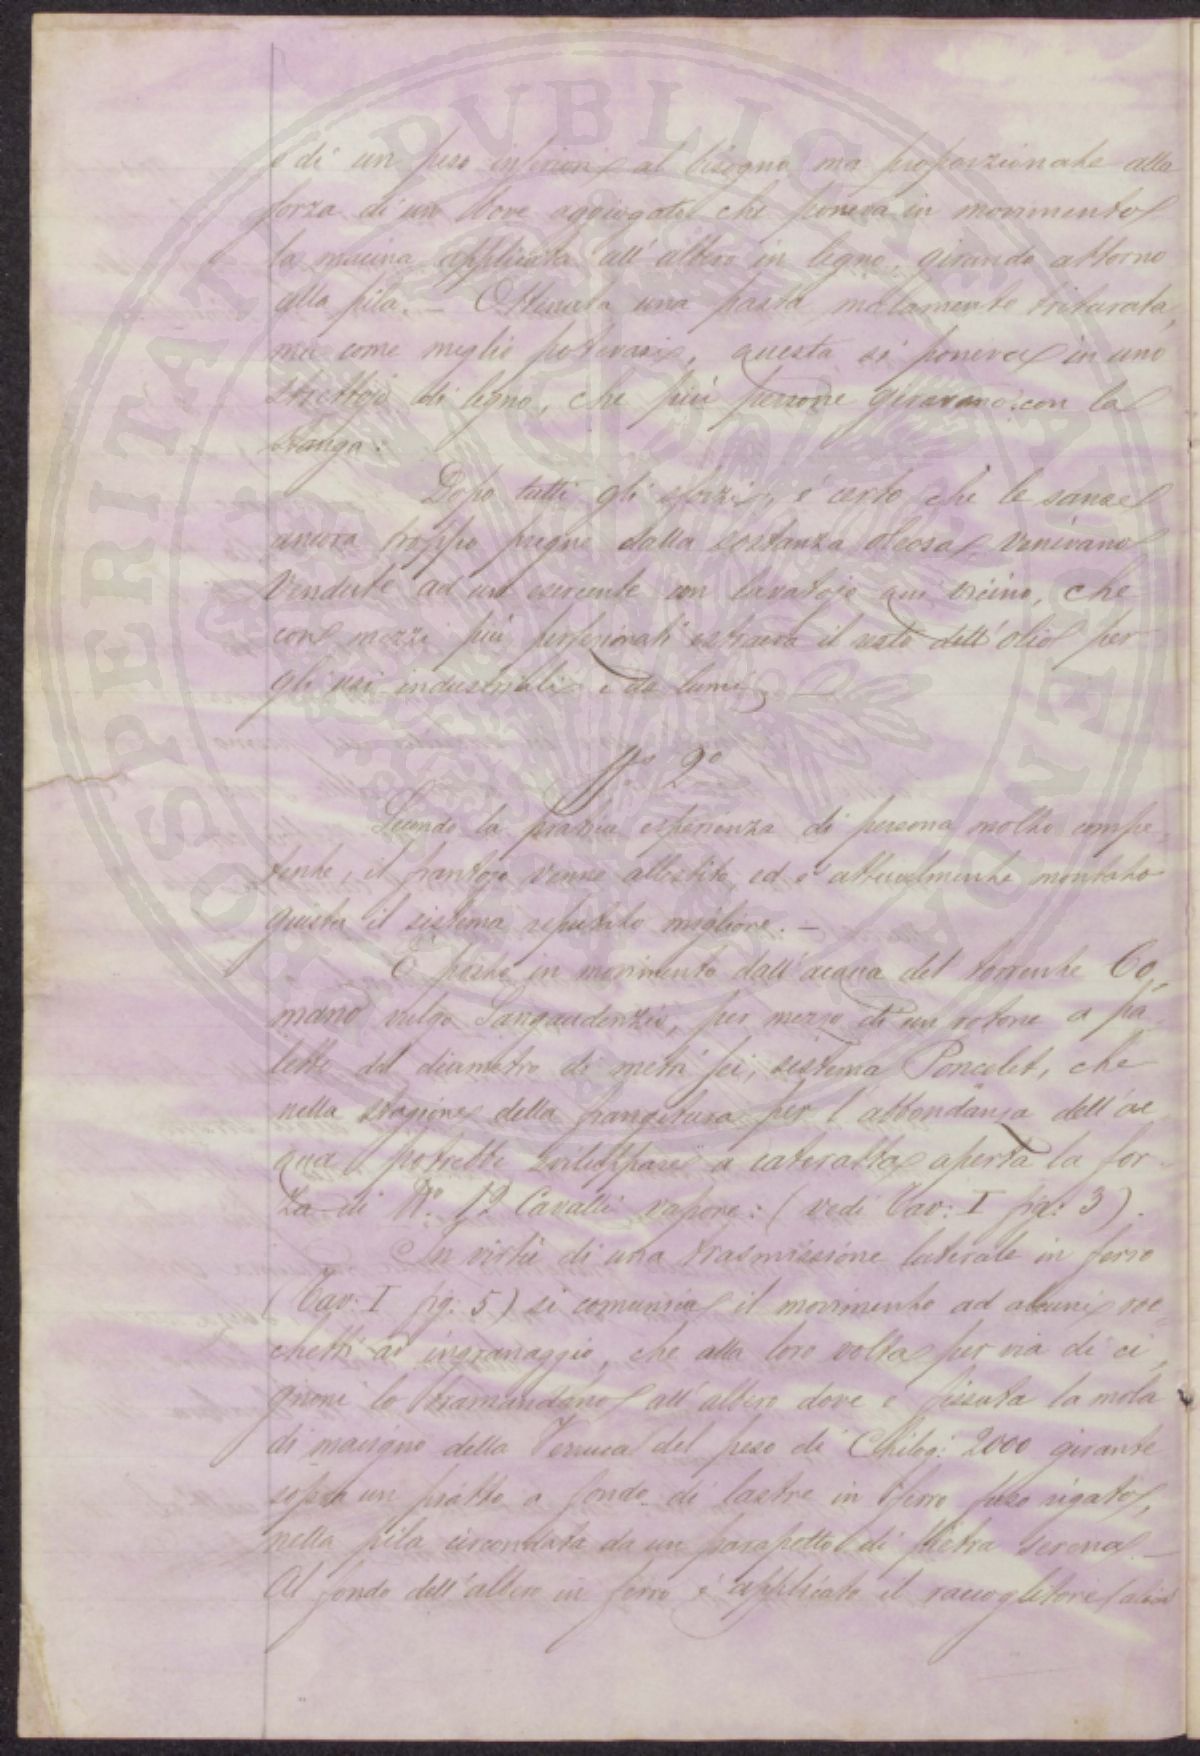 e di un peso inferiore al bisogno ma proporzionate alla
forza di un bove aggiogato che poneva in movimento
la macina applicata all'albero in legno, girando attorno
alla pila. — Ottenuta una pasta malamente triturata,
ma come meglio potevasi, questa si poneva in uno
strettojo di legno, che più persone giravano con la
stanga:
Dopo tutti gli sforzi, è certo che le sanse
ancora troppo pregne dalla sostanza oleosa, venivano
vendute ad un esercente con lavatojo qui vicino, che
con mezzi più perfezionati estraeva il resto dell'olio per
gli usi industriali e da lumi. —
N.º 2º
Secondo la pratica esperienza di persona molto compe-
tente, il frantojo venne allestito, ed è attualmente montato
giusta il sistema reputato migliore. —
È posto in movimento dall'acqua del torrente Co-
mano vulgo Sangaudenzio, per mezzo di un rotone a pa-
lette del diametro di metri sei, sistema Poncelet, che
nella stagione della frangitura per l'abbondanza dell'ac
qua potrebbe sviluppare a cateratta aperta la for-
za di N.º 12 Cavalli vapore: (vedi Tav: I fig: 3).
In virtù di una trasmissione laterale in ferro
(Tav: I fig: 5) si comunica il movimento ad alcuni roc-
chetti ad ingranaggio, che alla loro volta per via di ci-
gnoni lo tramandano all'albero dove è fissata la mola
di macigno della Verruca del peso di Chilog: 2000 girante
sopra un piatto a fondo di lastre in ferro fuso rigato,
nella pila circondata da un parapetto di pietra serena. —
Al fondo dell'albero in ferro è applicato il raccoglitore
PROSPERITATI PVBLICAE AVGENDAE